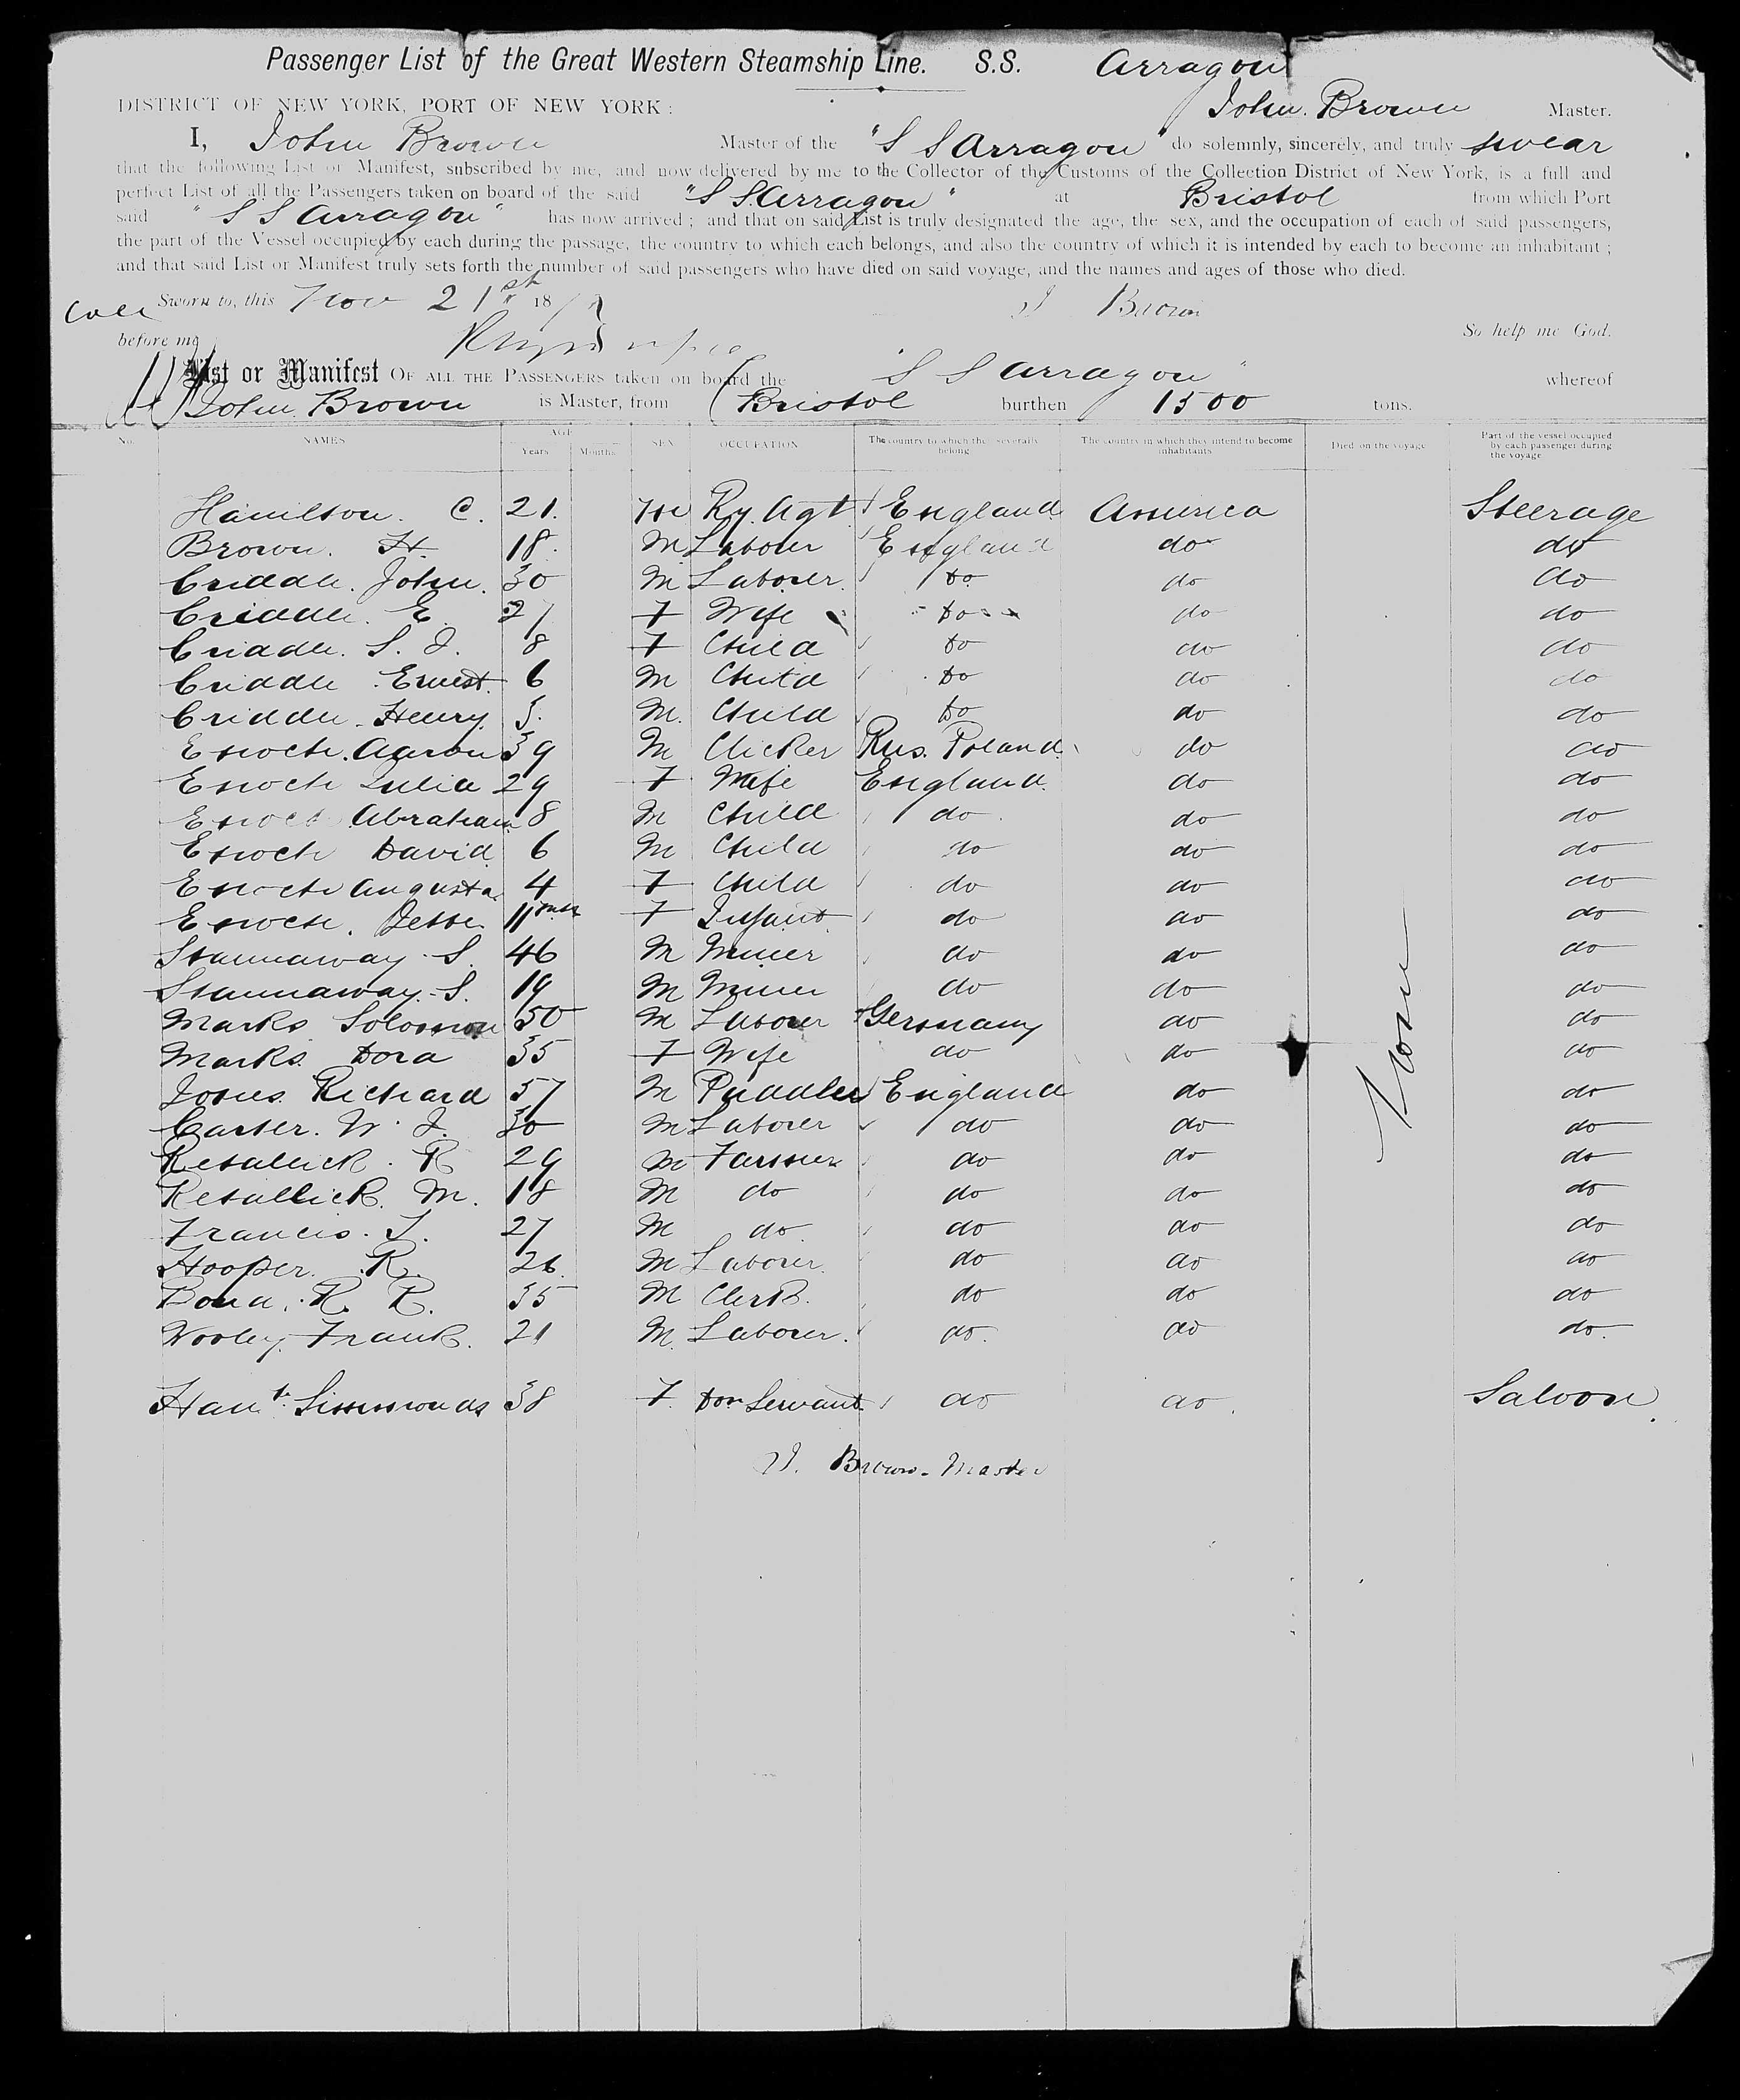 Passenger List of the Great Western Steamship Line. S.S. Arragon
DISTRICT OF NEW YORK, PORT OF NEW YORK: John Brown Master.
I, John Brown Master of the "S S Arragon" do solemnly, sincerely, and truly swear
that the following List or Manifest, subscribed by me, and now delivered by me to the Collector of the Customs of the Collection District of New York, is a full and
perfect List of all the Passengers taken on board of the said "S S Arragon" at Bristol from which Port
said "S S Arragon" has now arrived; and that on said List is truly designated the age, the sex, and the occupation of each of said passengers,
the part of the Vessel occupied by each during the passage, the country to which each belongs, and also the country of which it is intended by each to become an inhabitant;
and that said List or Manifest truly sets forth the number of said passengers who have died on said voyage, and the names and ages of those who died.
Sworn to, this Nov 21st 18 J Brown
before me So help me God.
List or Manifest OF ALL THE PASSENGERS taken on board the "S S Arragon" whereof
John Brown is Master, from Bristol burthen 1500 tons.
No. NAMES AGE Years Months SEX OCCUPATION The country to which the severally belong The country in which they intend to become inhabitants Died on the voyage Part of the vessel occupied by each passenger during the voyage
Hamilson. C. 21. M Ry. Agt England America Steerage
Brown. H. 18. M Labourer England do do
Criddle. John. 30 M Laborer do do do
Criddle. E. 27 F Wife do do do
Criddle. S. J. 8 F Child do do do
Criddle. Ernest. 6 M Child do do do
Criddle. Henry. 3. M. Child do do do
Enoch. Aaron 39 M Clicker Rus. Poland. do do
Enoch Julia 29 F Wife England. do do
Enoch Abraham 8 M Child do do do
Enoch David 6 M Child do do do
Enoch Augusta 4 F Child do do do
Enoch. Jesse 11 mths F Infant do do do
Stannaway. S. 46 M Miner do do do
Stannaway. S. 19 M Miner do do do
Marks Solomon 50 M Laborer Germany do do
Marks. Dora 35 F Wife do do do
Jones. Richard 57 M Puddler England do do
Carter. W. J. 30 M Laborer do do do
Retallick. R 29 M Farmer do do do
Retallick. M. 18 M do do do do
Francis. T. 27 M do do do do
Hooper. R. 26. M Laborer. do do do
Bond. R. R. 35 M Clerk. do do do
Wooley. Frank. 21 M. Laborer. do. do do.
None
Hanh. Simmonds 38 F. Dom Servant do do. Saloon.
J. Brown. Master